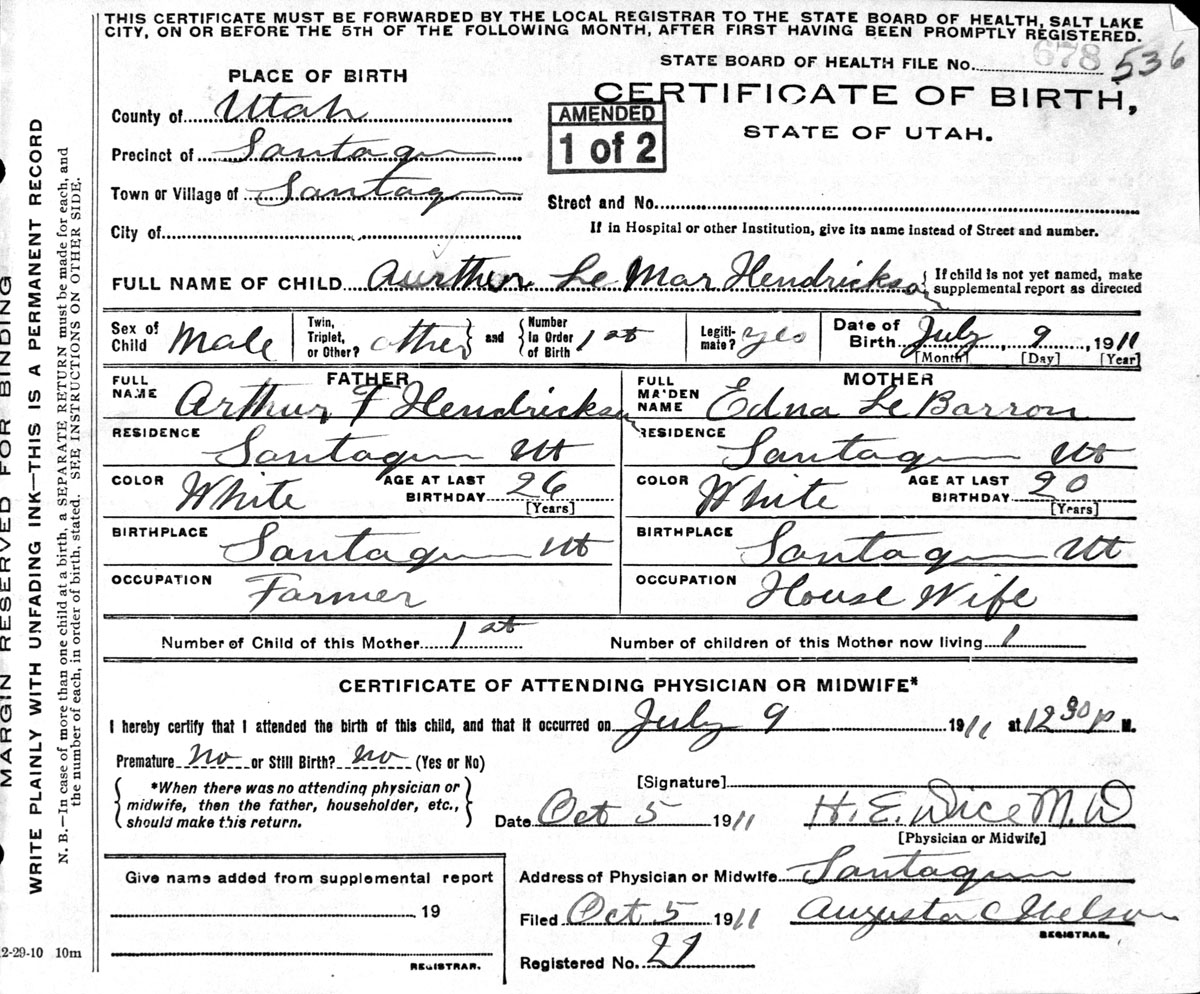 THIS CERTIFICATE MUST BE FORWARDED BY THE LOCAL REGISTRAR TO THE STATE BOARD OF HEALTH, SALT LAKE
CITY, ON OR BEFORE THE 5TH OF THE FOLLOWING MONTH, AFTER FIRST HAVING BEEN PROMPTLY REGISTERED.
STATE BOARD OF HEALTH FILE No. 678 536
PLACE OF BIRTH
CERTIFICATE OF BIRTH,
STATE OF UTAH.
AMENDED
1 of 2
County of Utah
Precinct of Santaquin
Town or Village of Santaquin
City of
Street and No.
If in Hospital or other Institution, give its name instead of Street and number.
FULL NAME OF CHILD Aurthur Le Mar Hendrickson { If child is not yet named, make
supplemental report as directed
Sex of Child Male
Twin, Triplet, or Other? other } and { Number in Order of Birth 1st
Legiti- mate? yes
Date of Birth July, 9, 1911
[Month] [Day] [Year]
FATHER
FULL NAME Arthur F Hendrickson
RESIDENCE Santaquin Ut
COLOR White AGE AT LAST BIRTHDAY 26
[Years]
BIRTHPLACE Santaquin Ut
OCCUPATION Farmer
MOTHER
FULL MAIDEN NAME Edna Le Barron
RESIDENCE Santaquin Ut
COLOR White AGE AT LAST BIRTHDAY 20
[Years]
BIRTHPLACE Santaquin Ut
OCCUPATION House Wife
Number of Child of this Mother 1st Number of children of this Mother now living 1
CERTIFICATE OF ATTENDING PHYSICIAN OR MIDWIFE*
I hereby certify that I attended the birth of this child, and that it occurred on July 9 1911 at 12 30 p M.
Premature No or Still Birth? No (Yes or No)
*When there was no attending physician or
midwife, then the father, householder, etc.,
should make this return.
[Signature]
Date Oct 5 1911 H. E. Wice M.W
[Physician or Midwife]
Give name added from supplemental report
19
REGISTRAR.
Address of Physician or Midwife Santaquin
Filed Oct 5 1911 Augusta C Nelson
REGISTRAR.
Registered No. 27
MARGIN RESERVED FOR BINDING
WRITE PLAINLY WITH UNFADING INK—THIS IS A PERMANENT RECORD
N. B.—In case of more than one child at a birth, a SEPARATE RETURN must be made for each, and
the number of each, in order of birth, stated. SEE INSTRUCTIONS ON OTHER SIDE.
2-29-10 10m